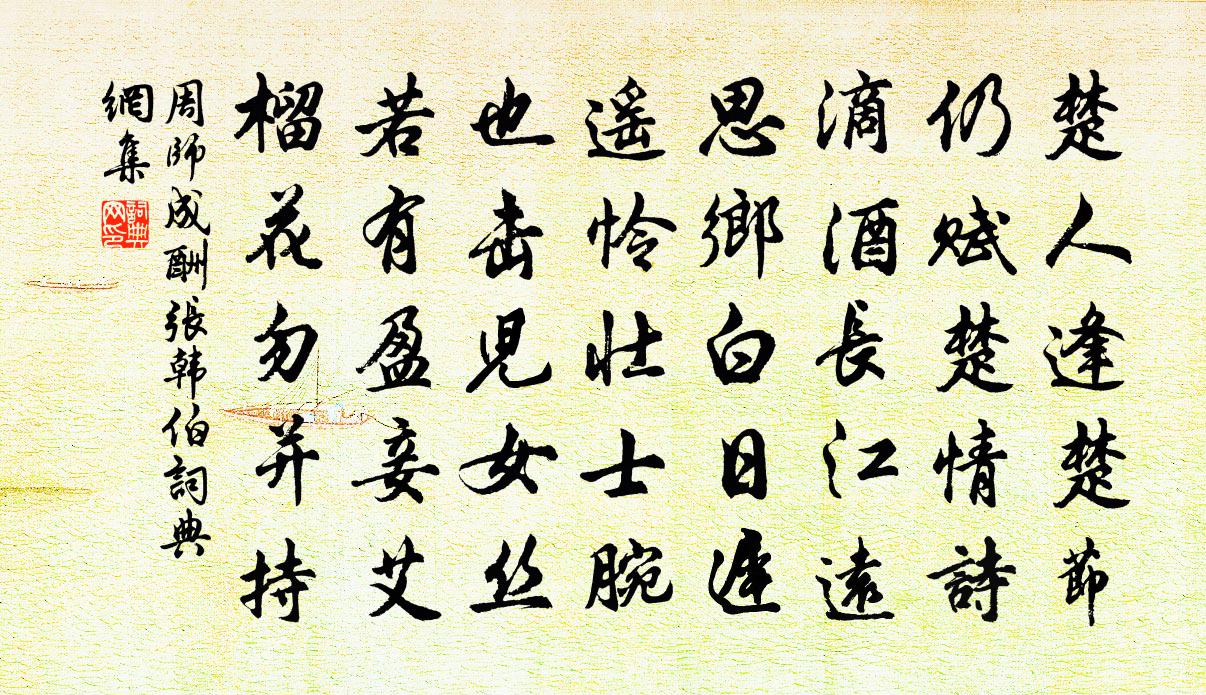 楚人逢楚節
仍赋楚情詩
滴酒長江遠
思鄉白日遲
遥怜壮士腕
也击兒女丝
若有盈妾艾
榴花勿并持
周師成酬張韩伯詞典
網集
詞典网印